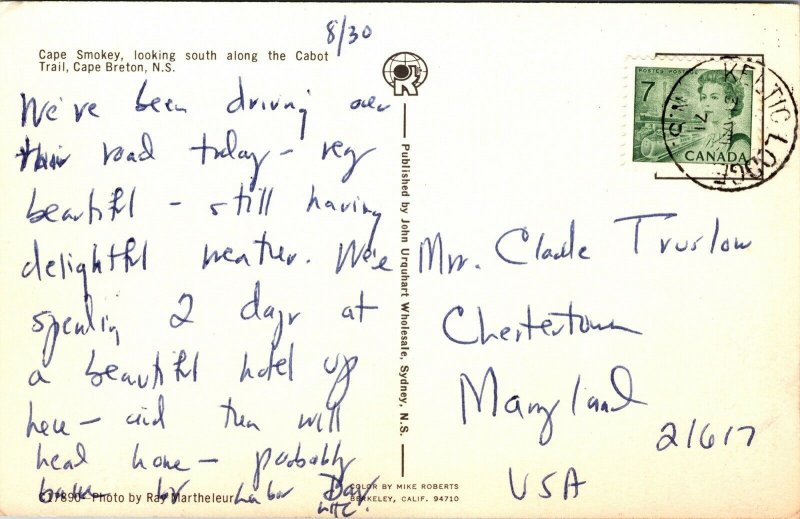 8/30
Cape Smokey, looking south along the Cabot
Trail, Cape Breton, N.S.
We've been driving over
this road today - very
beautiful - still having
delightful weather. We're
spending 2 days at
a beautiful hotel up
here - and then will
head home - probably
by Labor Day
C17890 Photo by Ray Martheleur
Published by John Urquhart Wholesale, Sydney, N.S.
COLOR BY MIKE ROBERTS
BERKELEY, CALIF. 94710
POSTES POSTAGE
7
CANADA
KELTIC LODGE
N.S.
71
Mrs. Claude Truslow
Chestertown
Maryland
21617
USA